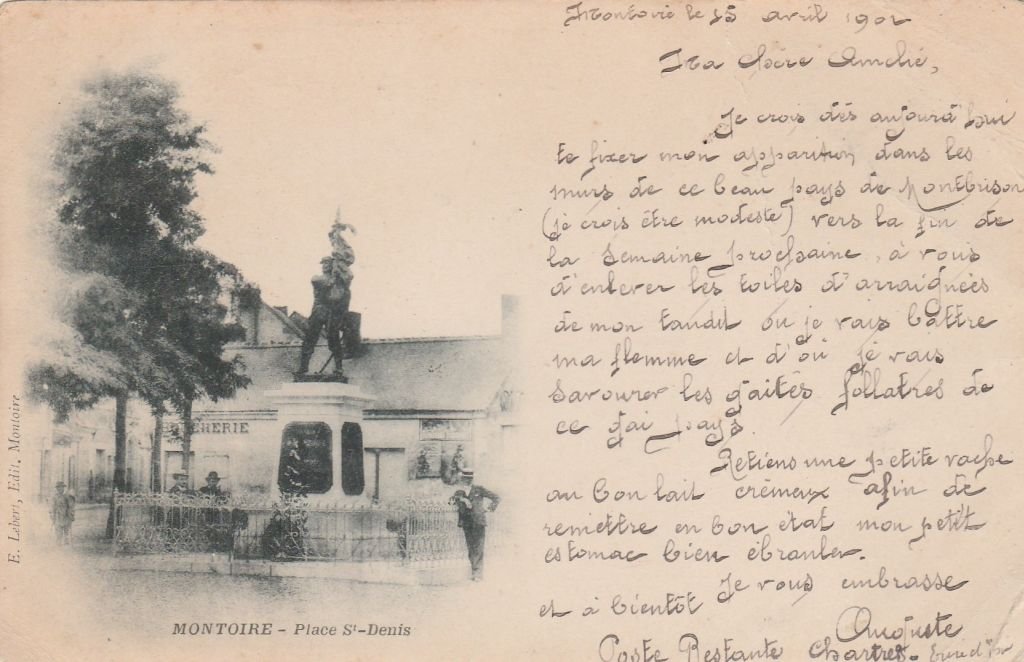 Montoire le 15 avril 1902
Ma chère Amelie,
Je crois dès aujourd'hui
te fixer mon apparition dans les
murs de ce beau pays de Montbrison
(je crois être modeste) vers la fin de
la semaine prochaine, à vous
d'enlever les toiles d'arraignées
de mon taudit où je vais battre
ma flemme et d'où je vais
savourer les gaités follatres de
ce gai pays.
Retiens une petite vache
au bon lait crémeux afin de
remettre en bon état mon petit
estomac bien ébranler.
Je vous embrasse
et à bientôt
Auguste
Poste Restante Chartres.
CHERIE
E. Lebert, Edit. Montoire
MONTOIRE - Place St-Denis